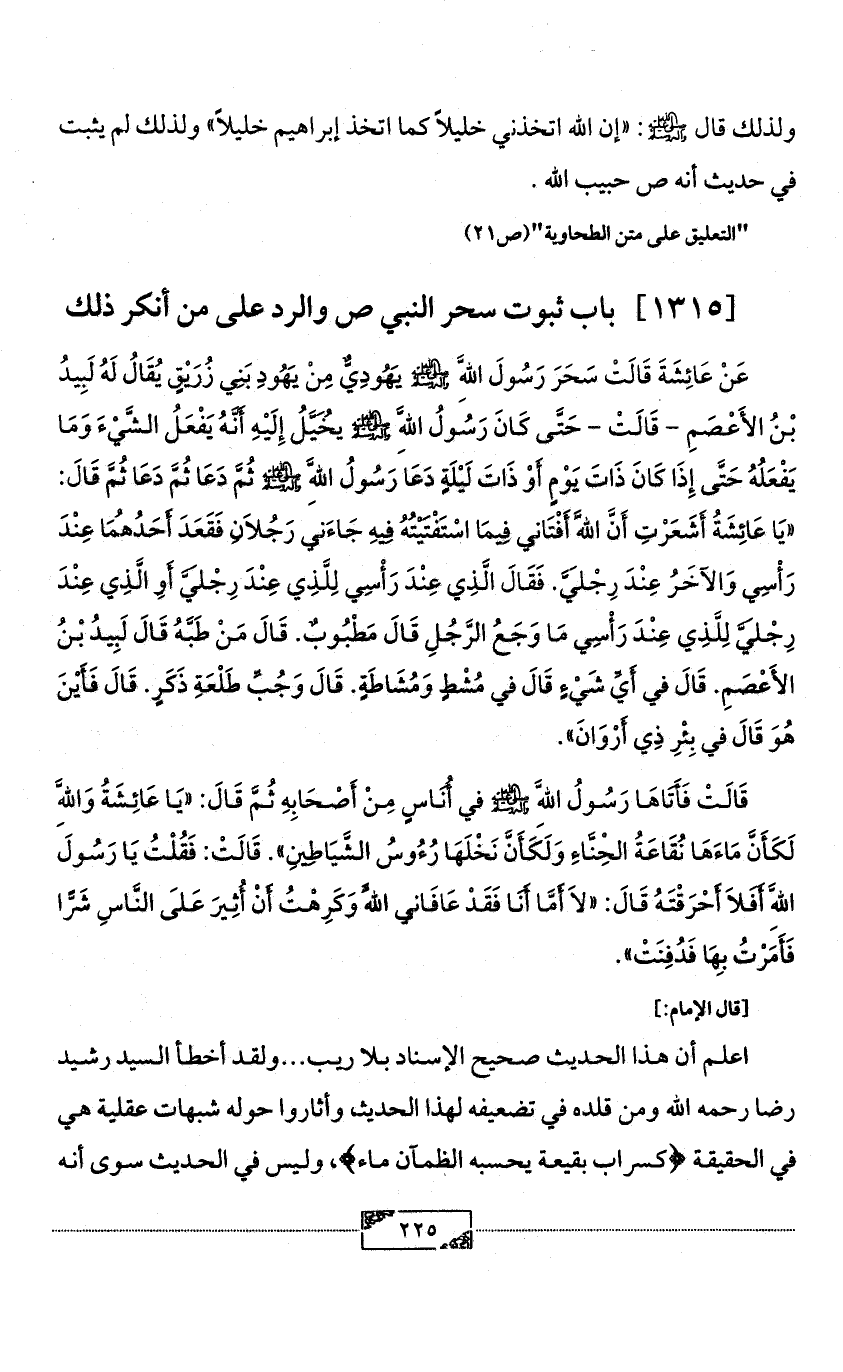 ولذلك قال ﷺ: «إن الله اتخذني خليلاً كما اتخذ إبراهيم خليلاً» ولذلك لم يثبت
في حديث أنه ص حبيب الله .
"التعليق على متن الطحاوية"(ص٢١)
[١٣١٥] باب ثبوت سحر النبي ص والرد على من أنكر ذلك
عَنْ عَائِشَةَ قَالَتْ سَحَرَ رَسُولَ اللهِ ﷺ يَهُودِيٌّ مِنْ يَهُودِ بَنِي زُرَيْقٍ يُقَالُ لَهُ لَبِيدُ
بْنُ الأَعْصَمِ - قَالَتْ - حَتَّى كَانَ رَسُولُ اللهِ ﷺ يخُيَّلُ إِلَيْهِ أَنَّهُ يَفْعَلُ الشَّيْءَ وَمَا
يَفْعَلُهُ حَتَّى إِذَا كَانَ ذَاتَ يَوْمٍ أَوْ ذَاتَ لَيْلَةٍ دَعَا رَسُولُ اللهِ ﷺ ثُمَّ دَعَا ثُمَّ دَعَا ثُمَّ قَالَ:
«يَا عَائِشَةُ أَشَعَرْتِ أَنَّ اللهَ أَفْتَانِي فِيمَا اسْتَفْتَيْتُهُ فِيهِ جَاءَنِي رَجُلاَنِ فَقَعَدَ أَحَدُهُمَا عِنْدَ
رَأْسِي وَالآخَرُ عِنْدَ رِجْلَيَّ. فَقَالَ الَّذِي عِنْدَ رَأْسِي لِلَّذِي عِنْدَ رِجْلَيَّ أَوِ الَّذِي عِنْدَ
رِجْلَيَّ لِلَّذِي عِنْدَ رَأْسِي مَا وَجَعُ الرَّجُلِ قَالَ مَطْبُوبٌ. قَالَ مَنْ طَبَّهُ قَالَ لَبِيدُ بْنُ
الأَعْصَمِ. قَالَ فِي أَيِّ شَيْءٍ قَالَ فِي مُشْطٍ وَمُشَاطَةٍ. قَالَ وَجُبِّ طَلْعَةِ ذَكَرٍ. قَالَ فَأَيْنَ
هُوَ قَالَ فِي بِئْرِ ذِي أَرْوَانَ».
قَالَتْ فَأَتَاهَا رَسُولُ اللهِ ﷺ فِي أُنَاسٍ مِنْ أَصْحَابِهِ ثُمَّ قَالَ: «يَا عَائِشَةُ وَاللهِ
لَكَأَنَّ مَاءَهَا نُقَاعَةُ الْحِنَّاءِ وَلَكَأَنَّ نَخْلَهَا رُءُوسُ الشَّيَاطِينِ». قَالَتْ: فَقُلْتُ يَا رَسُولَ
اللهِ أَفَلاَ أَحْرَقْتَهُ قَالَ: «لاَ أَمَّا أَنَا فَقَدْ عَافَانِي اللهُ وَكَرِهْتُ أَنْ أُثِيرَ عَلَى النَّاسِ شَرًّا
فَأَمَرْتُ بِهَا فَدُفِنَتْ».
[قال الإمام:]
اعلم أن هذا الحديث صحيح الإسناد بلا ريب...ولقد أخطأ السيد رشيد
رضا رحمه الله ومن قلده في تضعيفه لهذا الحديث، وأثاروا حوله شبهات عقلية هي
في الحقيقة ﴿كسراب بقيعة يحسبه الظمآن ماء﴾، وليس في الحديث سوى أنه
٢٢٥